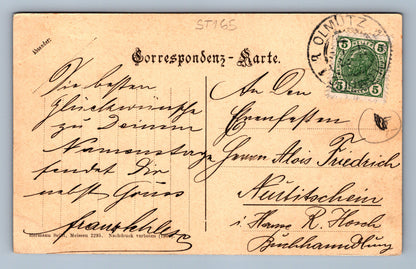 ST165
OLMÜTZ
5 5
HELLER
5 5
Absender:
Correspondenz-Karte.
Die besten
Glückwünsche
zu Deinem
Namenstage
sendet Dir
nebst Gruss
An Den
Ehrenfesten
Herrn Alois Friedrich
Neutitschein
i. Hause R. Hosch
Buchhandlung
Hermann Seibt, Meissen 1295. Nachdruck verboten